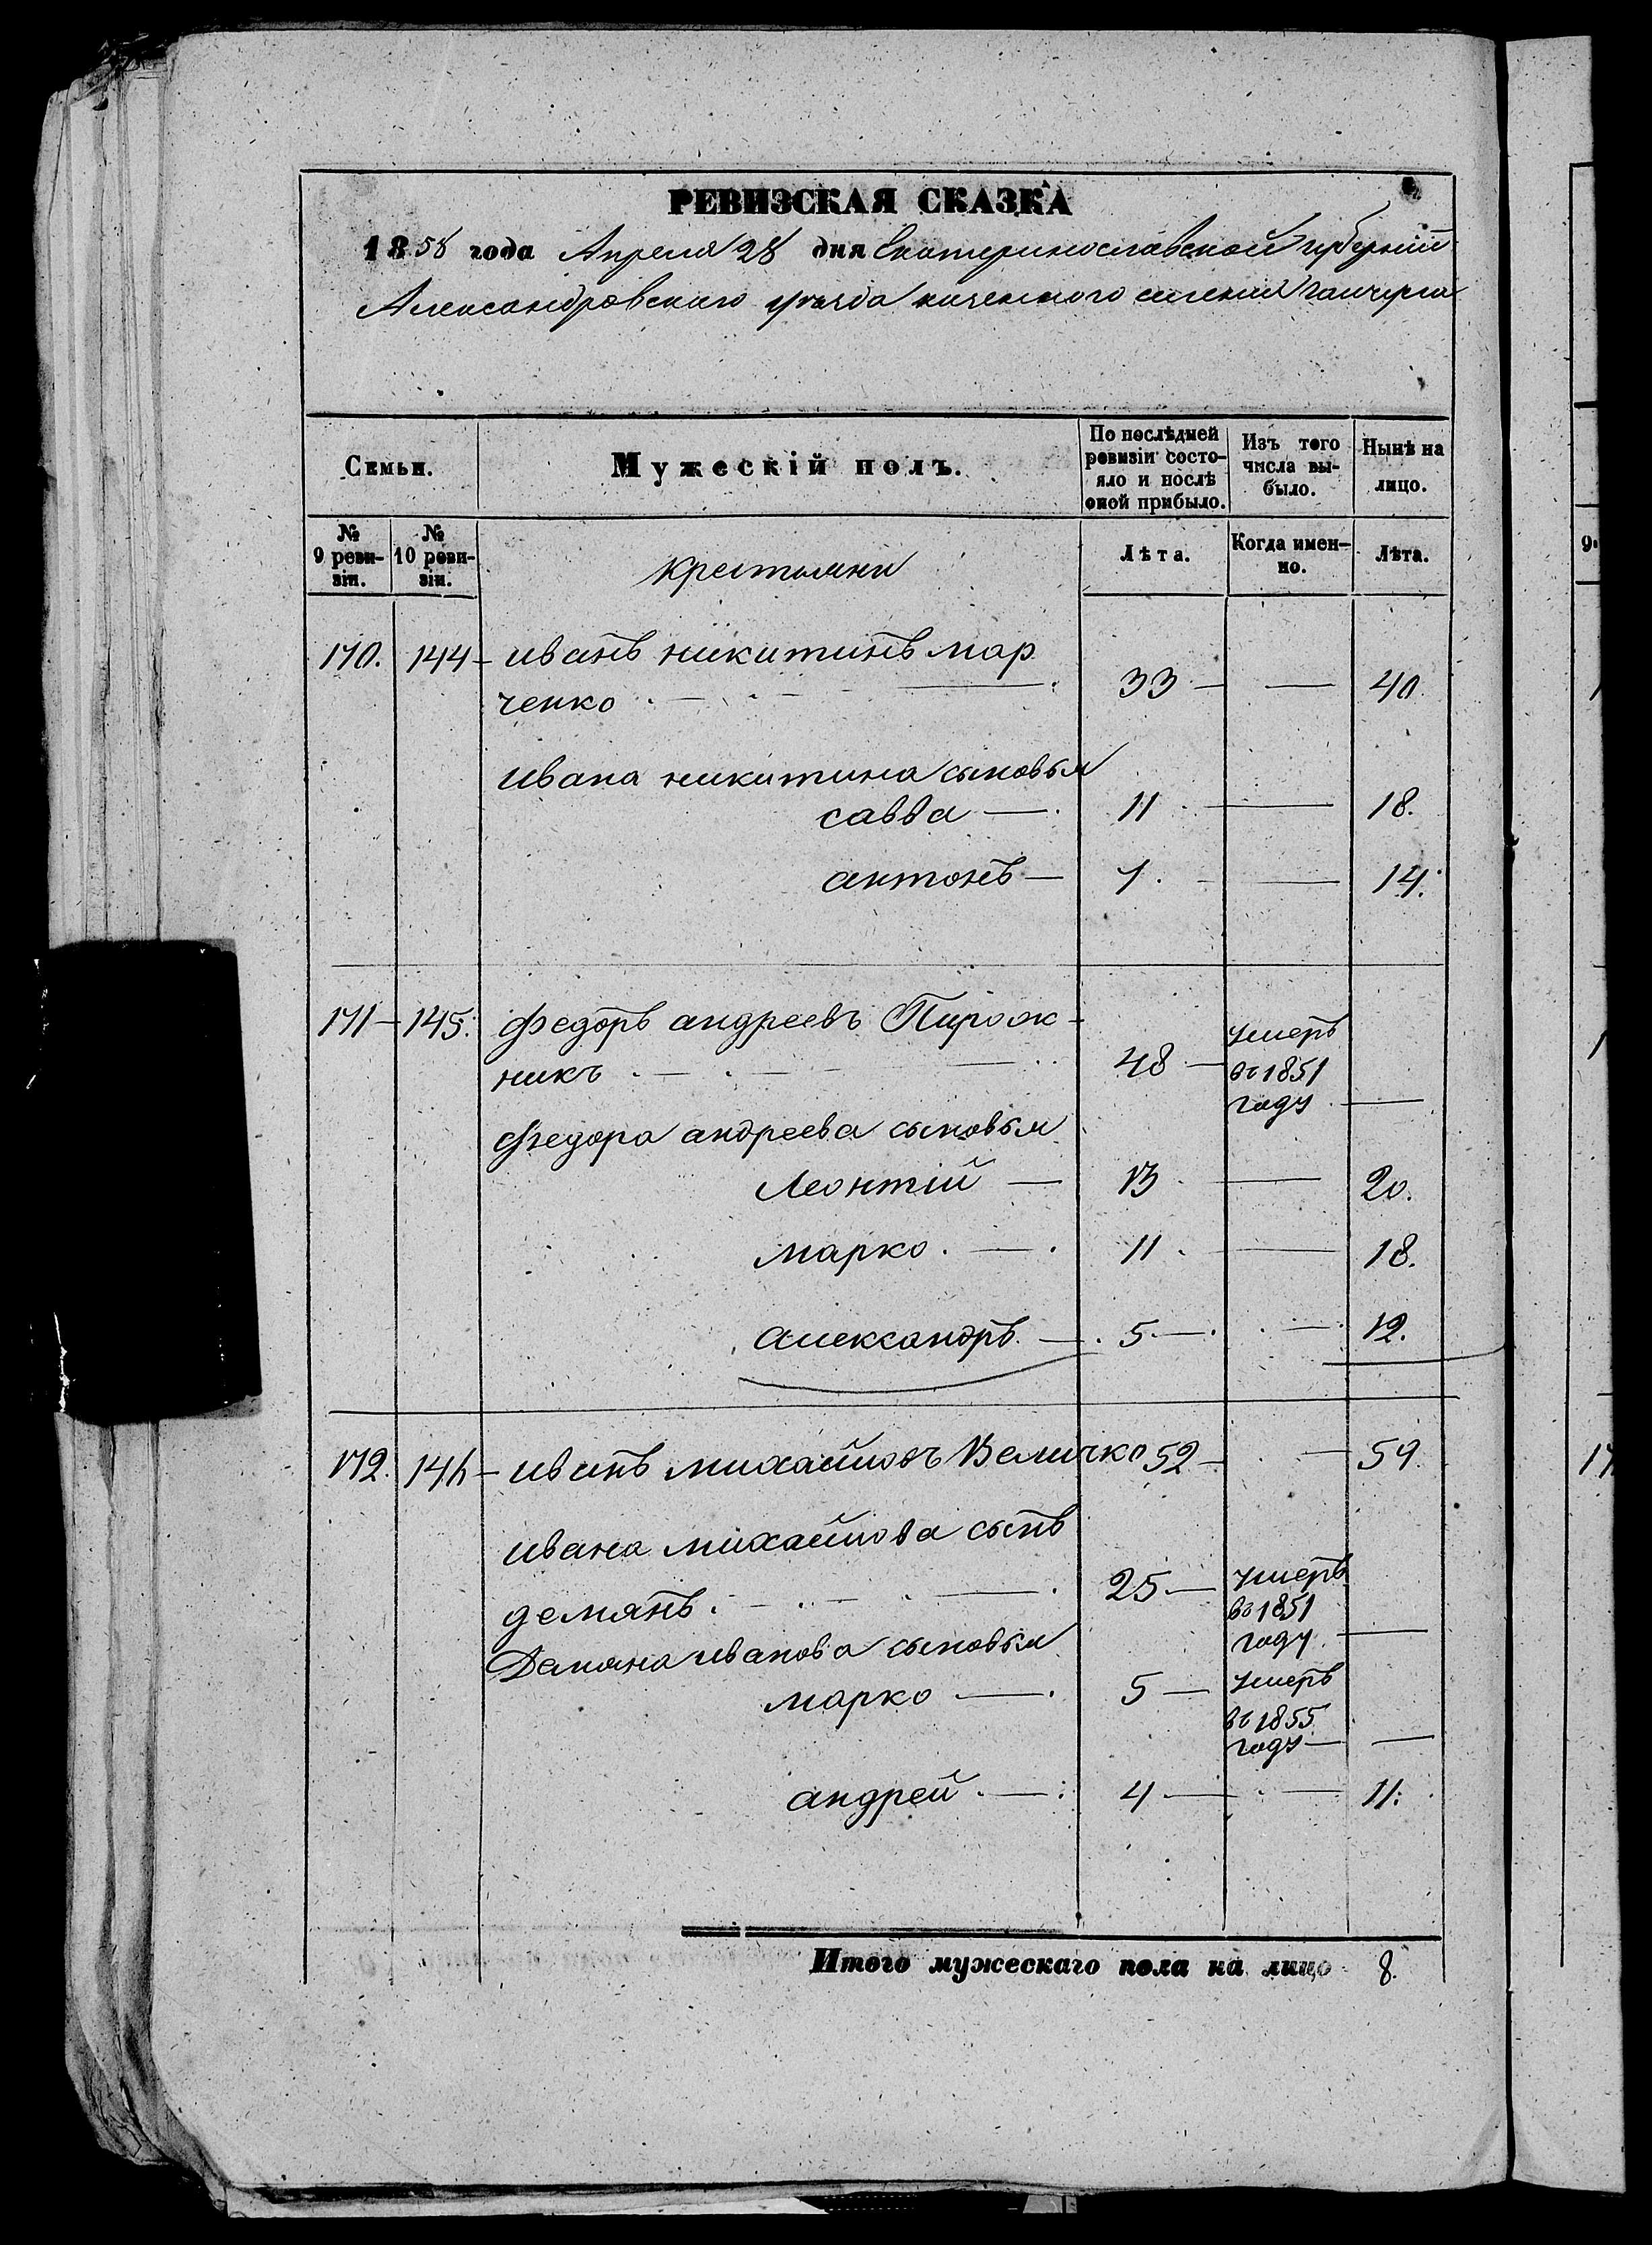 РЕВИЗСКАЯ СКАЗКА
1858 года Апреля 28 дня Екатеринославской губерніи
Александровскаго уѣзда казеннаго селенія гайчула
Семьи.
Мужескій полъ.
По послѣдней ревизіи состояло и послѣ оной прибыло.
Изъ того числа выбыло.
Нынѣ на лицо.
№ 9 ревизіи.
№ 10 ревизіи.
крестьяни
Лѣта.
Когда именно.
Лѣта.
170. 144 иванъ никитинъ мар
ченко 33 — 40.
ивана никитина сыновья
савва — 11 — 18.
антонъ — 7. — 14.
171 — 145. федоръ андреевъ Пирож-
никъ 48 — умеръ
въ 1851
году —
федора андреева сыновья
Леонтій — 13 — 20.
марко. — 11 — 18.
александръ. — 5 — 12.
172. 146 — иванъ михайловъ Величко 52 — 59.
ивана михайлова сынъ
демянъ. 25 — умеръ
въ 1851
году. —
Демяна иванова сыновья
марко — 5 — умеръ
въ 1855
году — —
андрей. — 4 — 11.
Итого мужескаго пола на лицо 8.